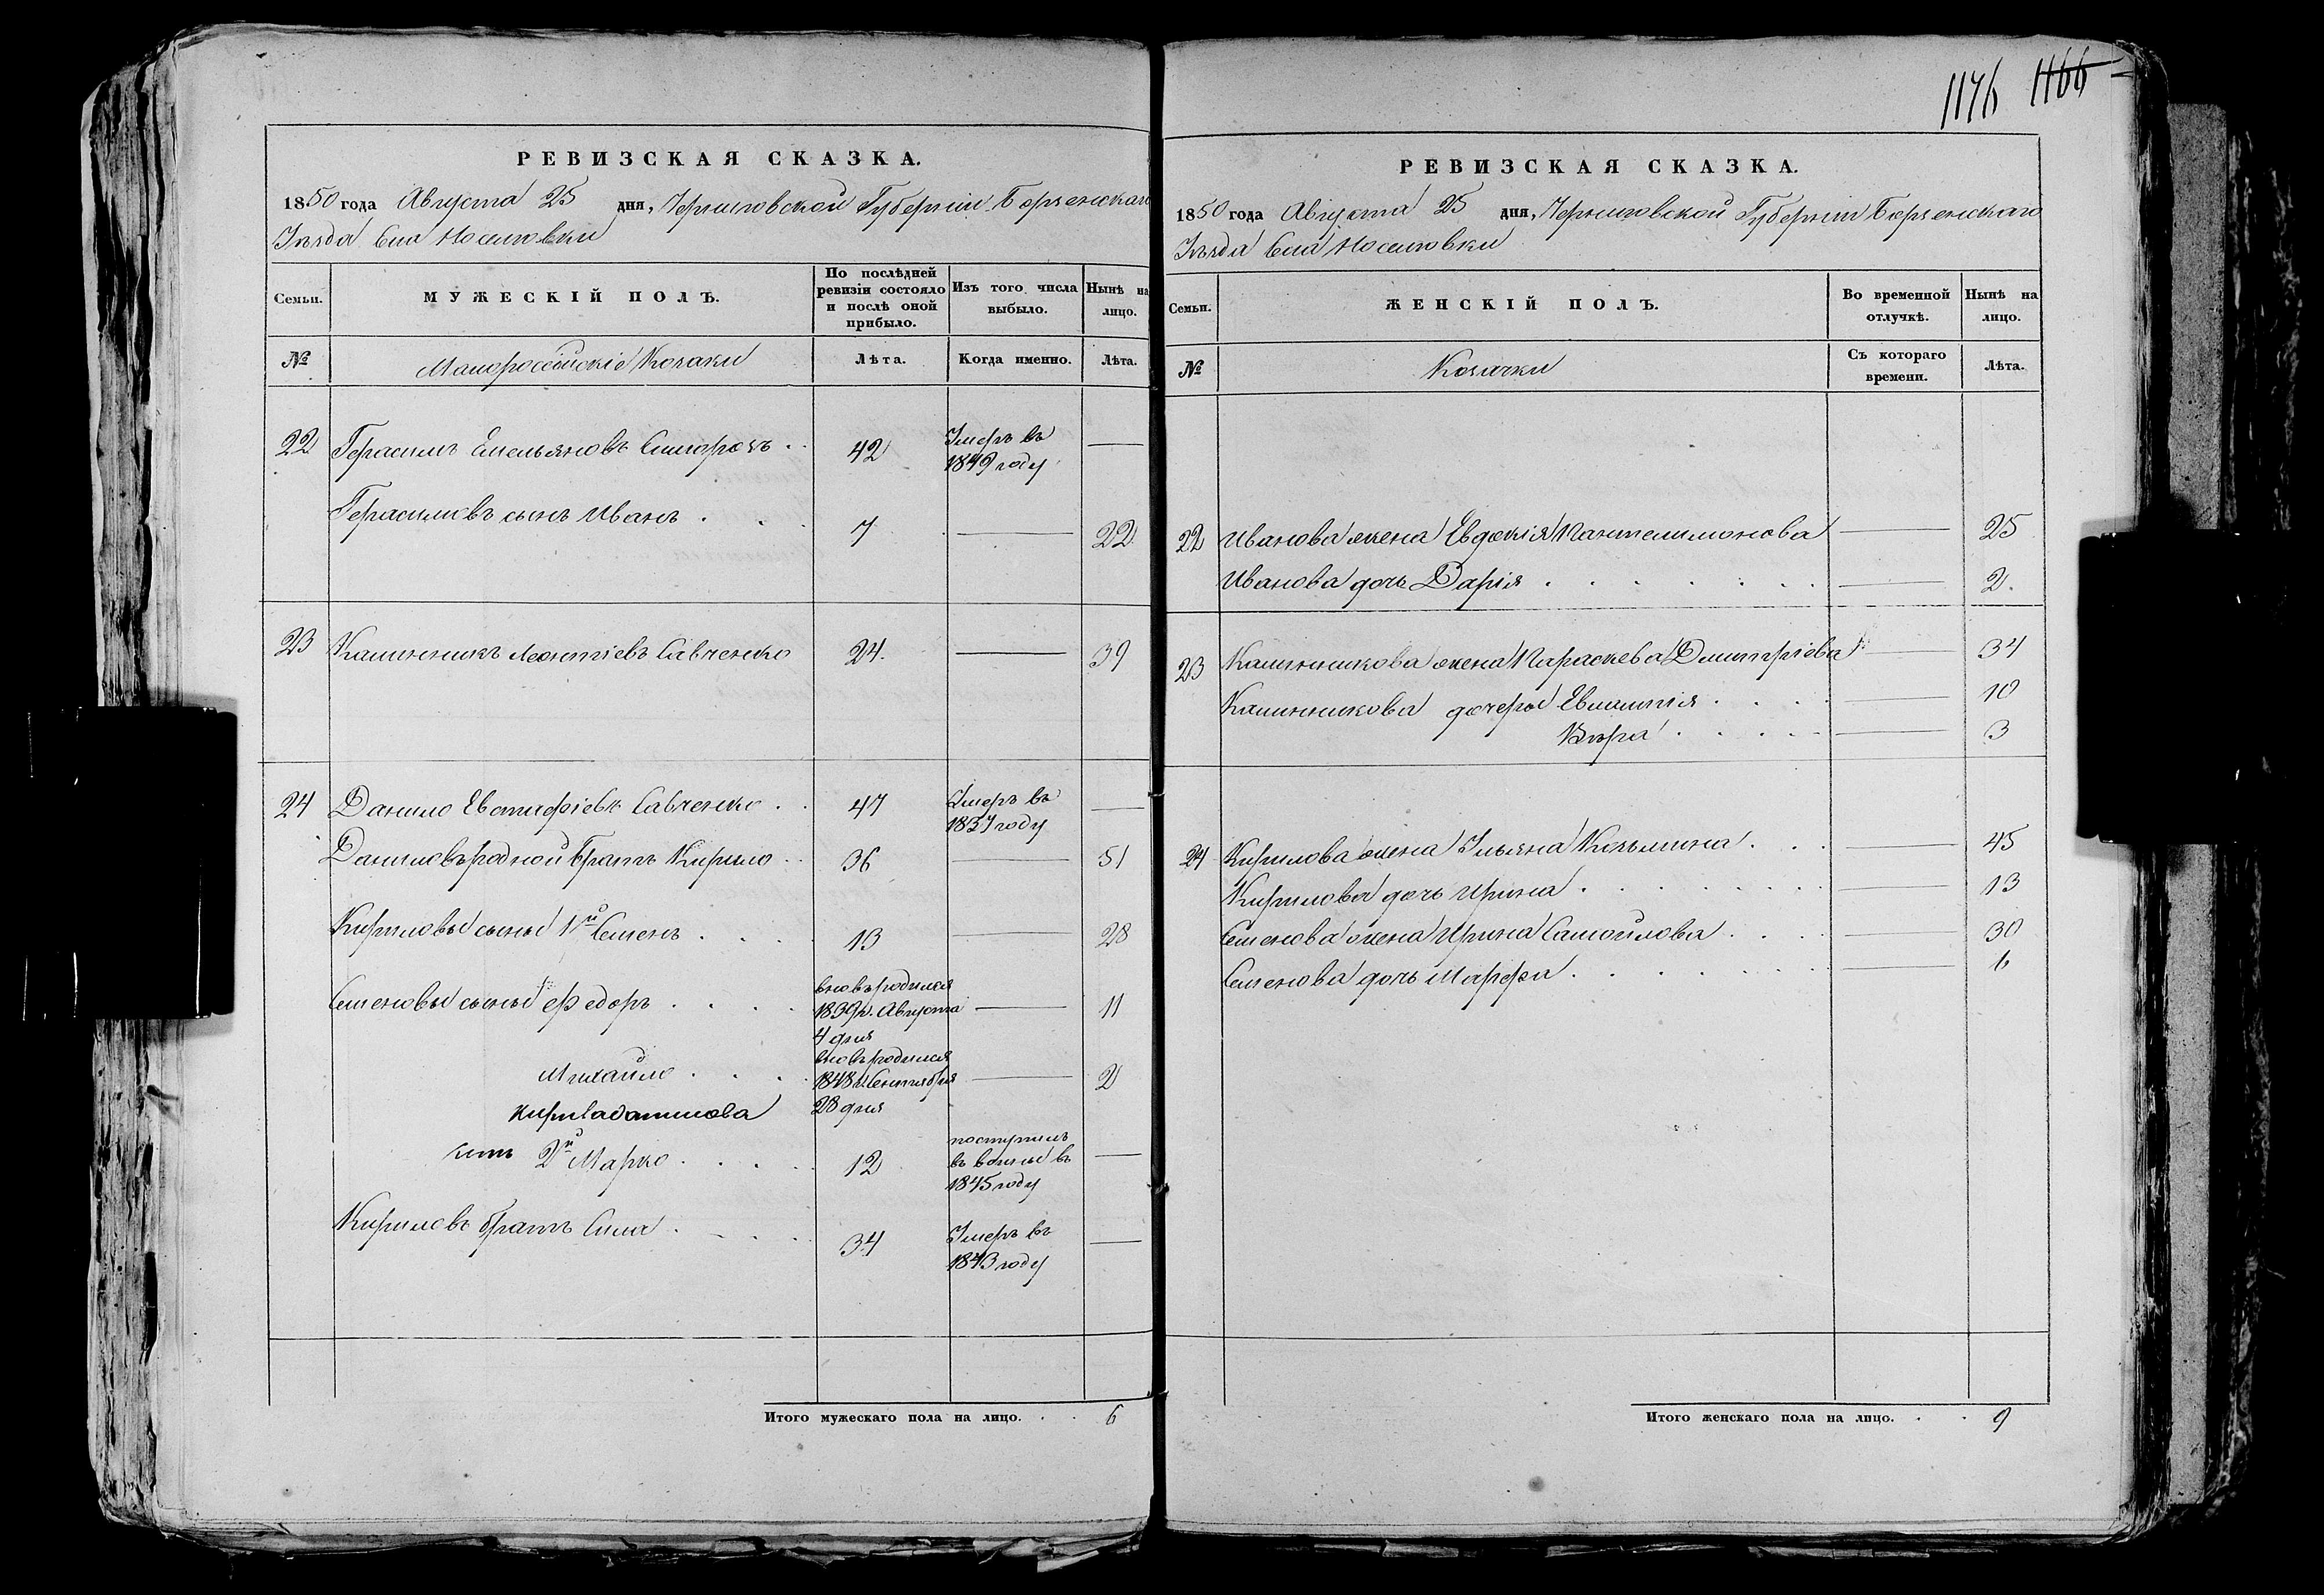 1176 1166
РЕВИЗСКАЯ СКАЗКА.
1850 года Августа 25 дня, Черниговской Губерніи Борзенскаго
Уѣзда Села Носеловки
Семьи.
МУЖЕСКІЙ ПОЛЪ.
По послѣдней ревизіи состояло и послѣ оной прибыло.
Изъ того числа выбыло.
Нынѣ на лицо.
№
Малороссійскіе Козаки
Лѣта.
Когда именно.
Лѣта.
22 Герасимъ Емельяновъ 42 Умеръ въ 1849 году —
Герасимовъ сынъ Иванъ . . . 7 — 22
23 Калинникъ Леонтіевъ Савченко 24. — 39
24 Данило Евстафіевъ Савченко . . 47 Умеръ въ 1837 году —
Даниловъ родной братъ Кирило . . 36 — 51
Кириловы сыны 1й Семенъ . . . 13 — 28
Семеновы сыны Федоръ . . . вновь родился 1839 г. Августа 4 дня — 11
Михайло . . . вновь родился 1848 г. Сентября 28 дня — 2
Кирила Данилова
сынъ 2й Марко . . . 12 поступилъ въ воины въ 1845 году —
Кириловъ братъ Сила . . . 34 Умеръ въ 1843 году —
Итого мужескаго пола на лицо. . . 6
РЕВИЗСКАЯ СКАЗКА.
1850 года Августа 25 дня, Черниговской Губерніи Борзенскаго
Уѣзда Села Носеловки
Семьи.
ЖЕНСКІЙ ПОЛЪ.
Во временной отлучкѣ.
Нынѣ на лицо.
№
Козачки
Съ котораго времени.
Лѣта.
22 Иванова жена Евдокія Пантелимонова — 25
Иванова дочь Дарія . . . . . . . — 2.
23 Калинникова жена Параскева Дмитріева — 34
Калинникова дочеры Евлампія . . . . — 10
Вѣра . . . . . — 3
24 Кирилова жена Ульяна Козьмина . . . — 45
Кирилова дочь Ирина . . . . . . . — 13
Семенова жена Ирина Самойлова . . . . — 30
Семенова дочь Марфа . . . . . . . — 6
Итого женскаго пола на лицо. . . 9